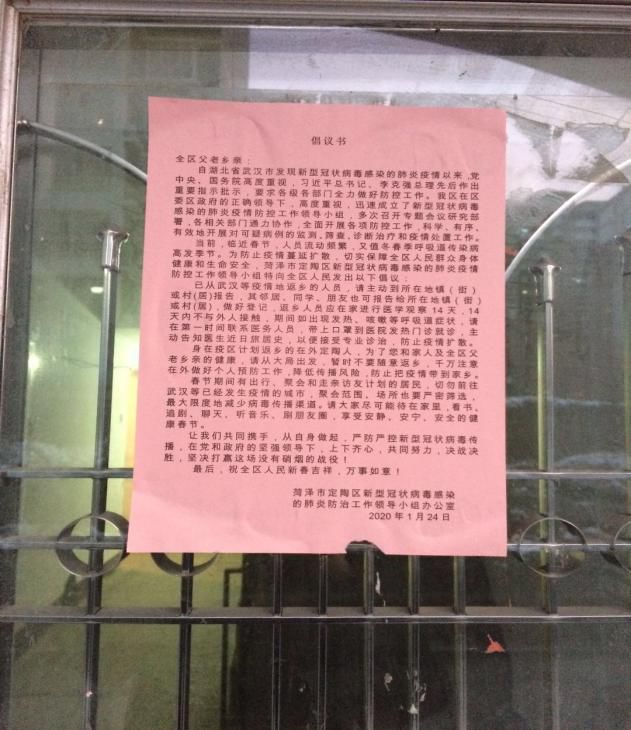 倡议书
全区父老乡亲：
自湖北省武汉市发现新型冠状病毒感染的肺炎疫情以来，党
中央、国务院高度重视，习近平总书记、李克强总理先后作出
重要指示批示，要求各级各部门全力做好防控工作。我区在区
委区政府的正确领导下，高度重视，迅速成立了新型冠状病毒
感染的肺炎疫情防控工作领导小组，多次召开专题会议研究部
署，各相关部门通力协作，全面开展各项防控工作，科学、有序、
有效地开展对可疑病例的监测、筛查、诊断治疗和疫情处置工作。
当前，临近春节，人员流动频繁，又值冬春季呼吸道传染病
高发季节。为防止疫情蔓延扩散，切实保障全区人民群众身体
健康和生命安全，菏泽市定陶区新型冠状病毒感染的肺炎疫情
防控工作领导小组特向全区人民发出以下倡议：
已从武汉等疫情地返乡的人员，请主动到所在地镇（街）
或村(居)报告，其邻居、同学、朋友也可报告给所在地镇（街）
或村(居)，做好登记，返乡人员应在家进行医学观察14天，14
天内不与外人接触，期间如出现发热、咳嗽等呼吸道症状，请
在第一时间联系医务人员，带上口罩到医院发热门诊就诊，主
动告知医生近日旅居史，以便接受专业诊治，防止疫情扩散。
身在疫区计划返乡的在外定陶人，为了您和家人及全区父
老乡亲的健康，请从大局出发，暂时不要随意返乡，千万注意
在外做好个人预防工作，降低传播风险，防止把疫情带到家乡。
春节期间有出行、聚会和走亲访友计划的居民，切勿前往
武汉等已经发生疫情的城市，聚会范围、场所也要严密筛选，
最大限度地减少病毒传播渠道。请大家尽可能待在家里，看书、
追剧、聊天、听音乐、刷朋友圈，享受安静、安宁、安全的健
康春节。
让我们共同携手，从自身做起，严防严控新型冠状病毒传
播，在党和政府的坚强领导下，上下齐心，共同努力，决战决
胜，坚决打赢这场没有硝烟的战役！
最后，祝全区人民新春吉祥，万事如意！
菏泽市定陶区新型冠状病毒感染
的肺炎防治工作领导小组办公室
2020年1月24日